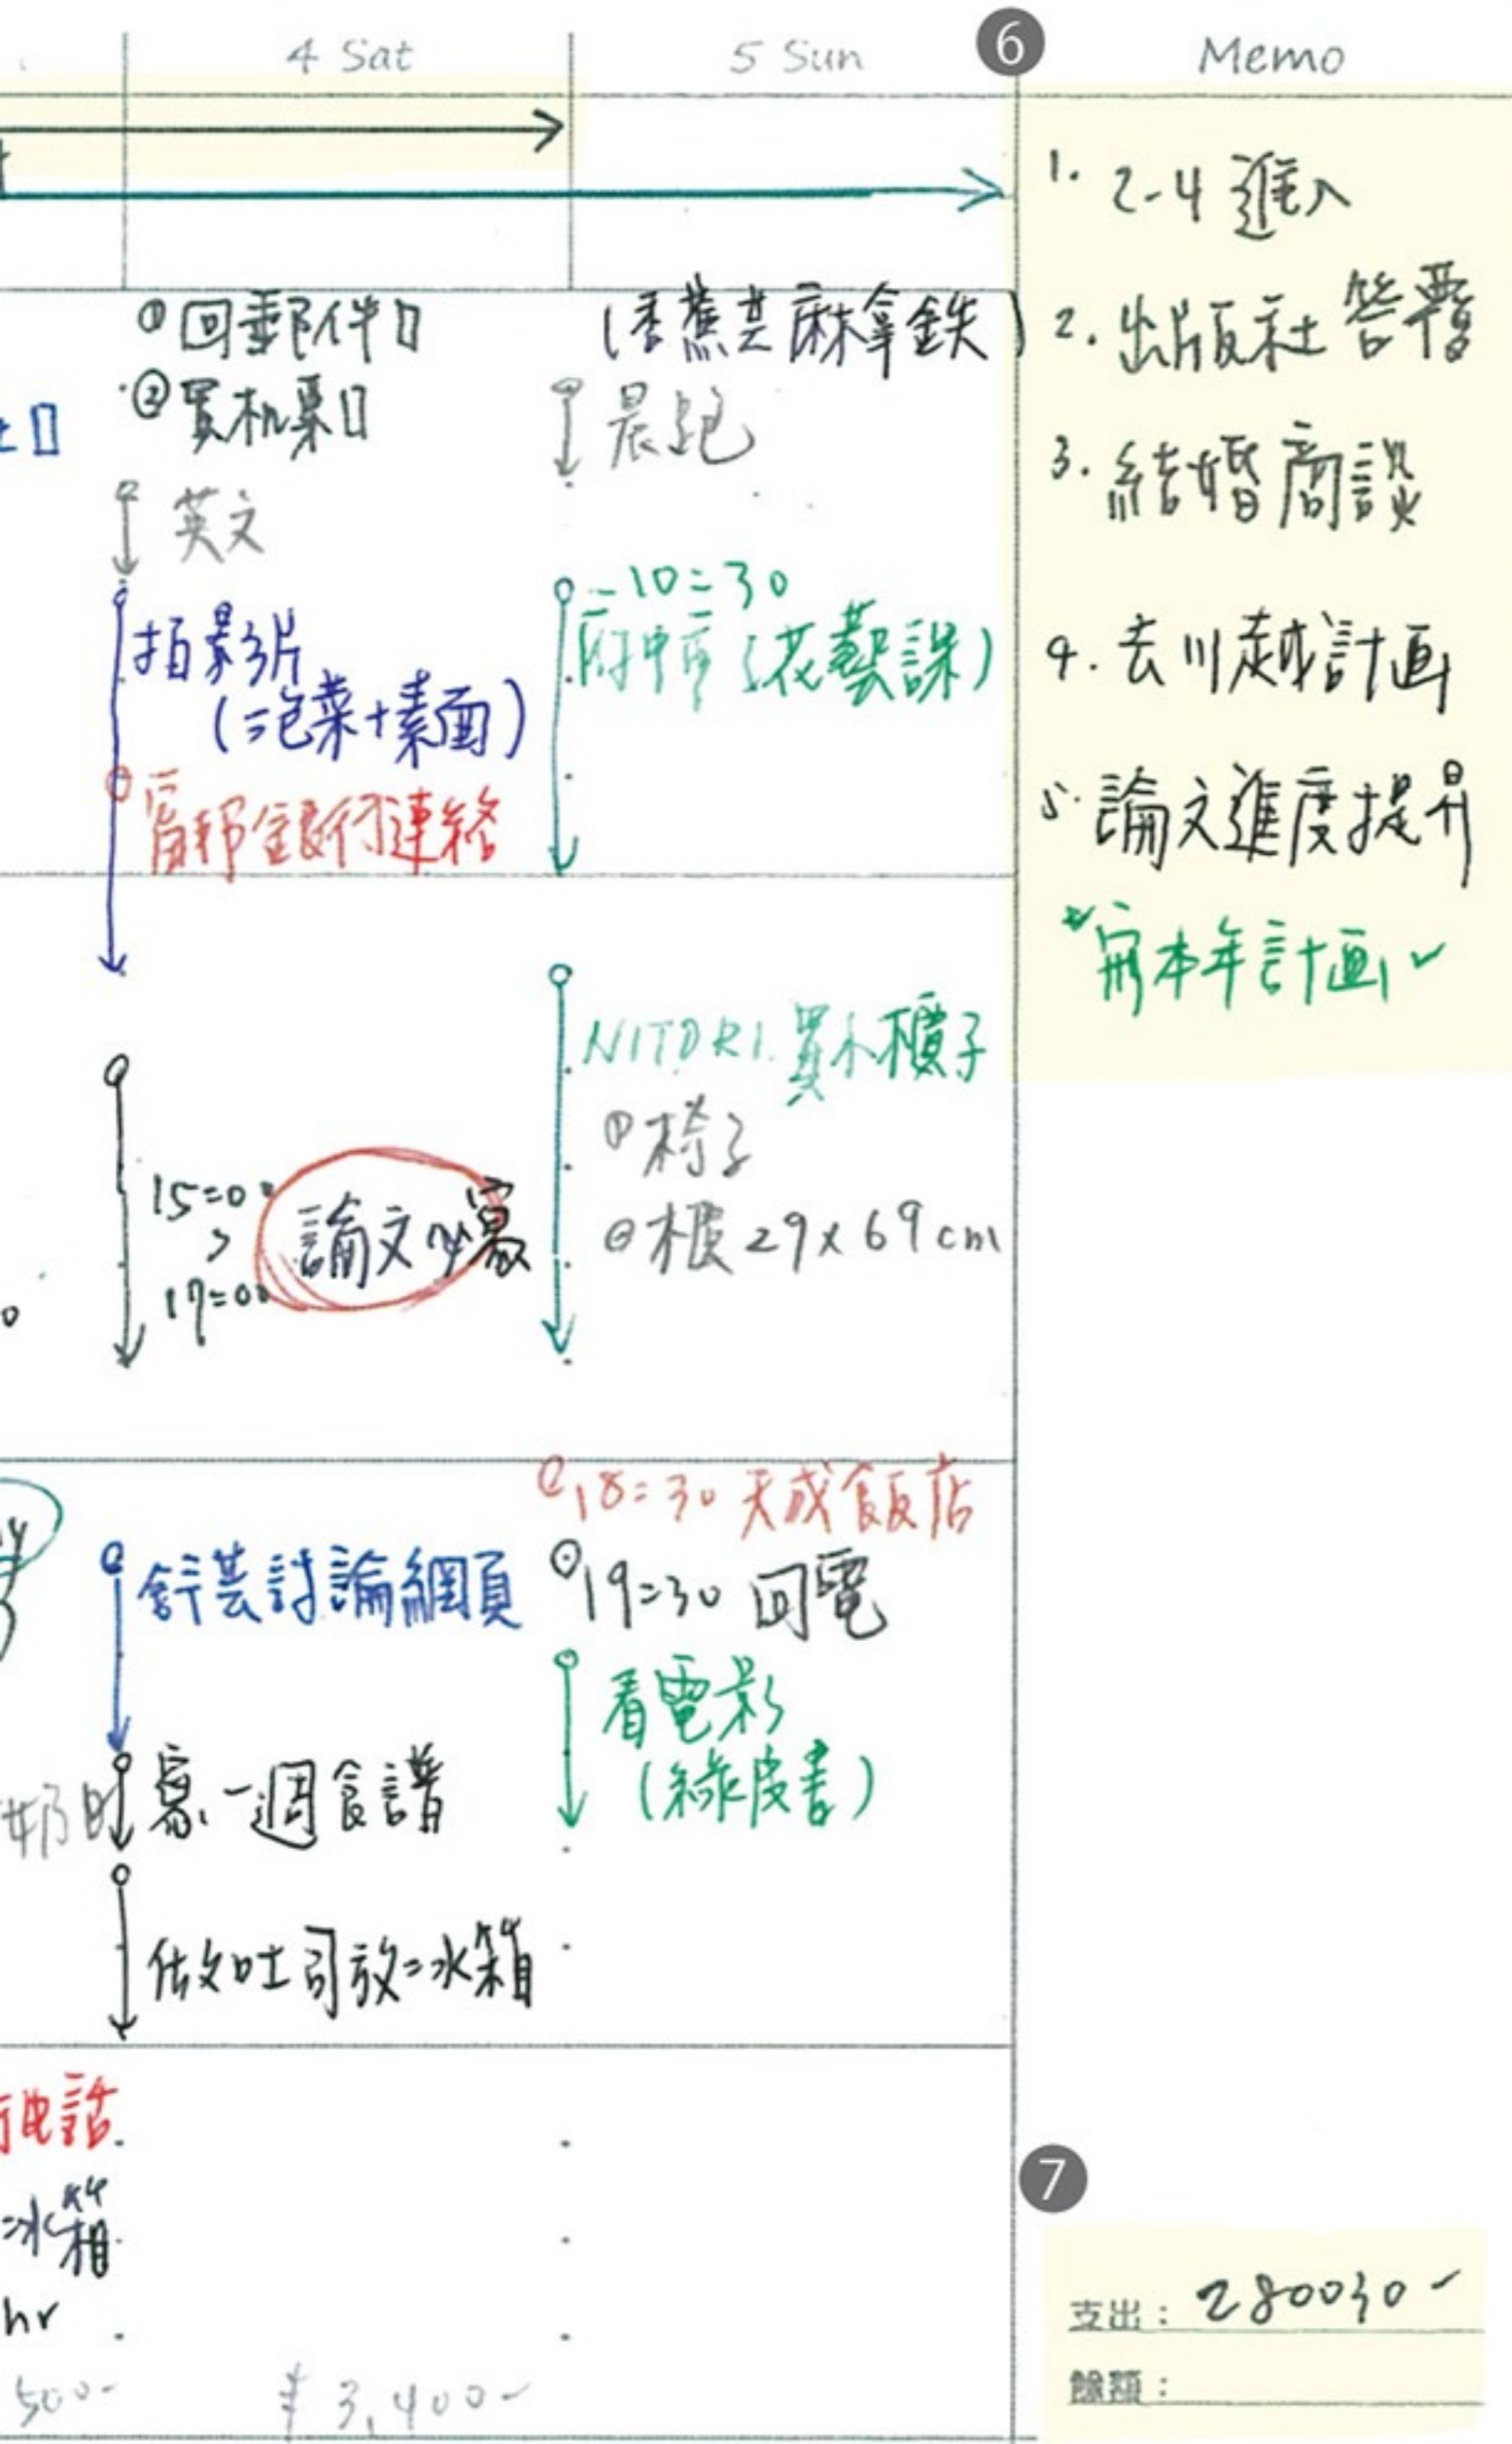 4 Sat
① 回郵件
② 買机票
英文
拍影片
(泡菜+素面)
富邦銀行連絡
15:00
17:00
論文必寫
舒芸討論網頁
寫一週食譜
做吐司放冰箱
¥3,400-
5 Sun
(香蕉芝麻拿鉄)
晨跑
10:30
府中市(花藝課)
NITORI 買小櫃子
① 椅子
② 櫃 29x69cm
18:30 天成飯店
19:30 回電
看電影
(綠皮書)
6
Memo
1. 2-4 進入
2. 出版社答覆
3. 結婚商談
4. 去川越計画
5. 論文進度提昇
寫本年計画 ✓
奶
电話
冰箱
hr
500-
7
支出: 280030-
餘額: